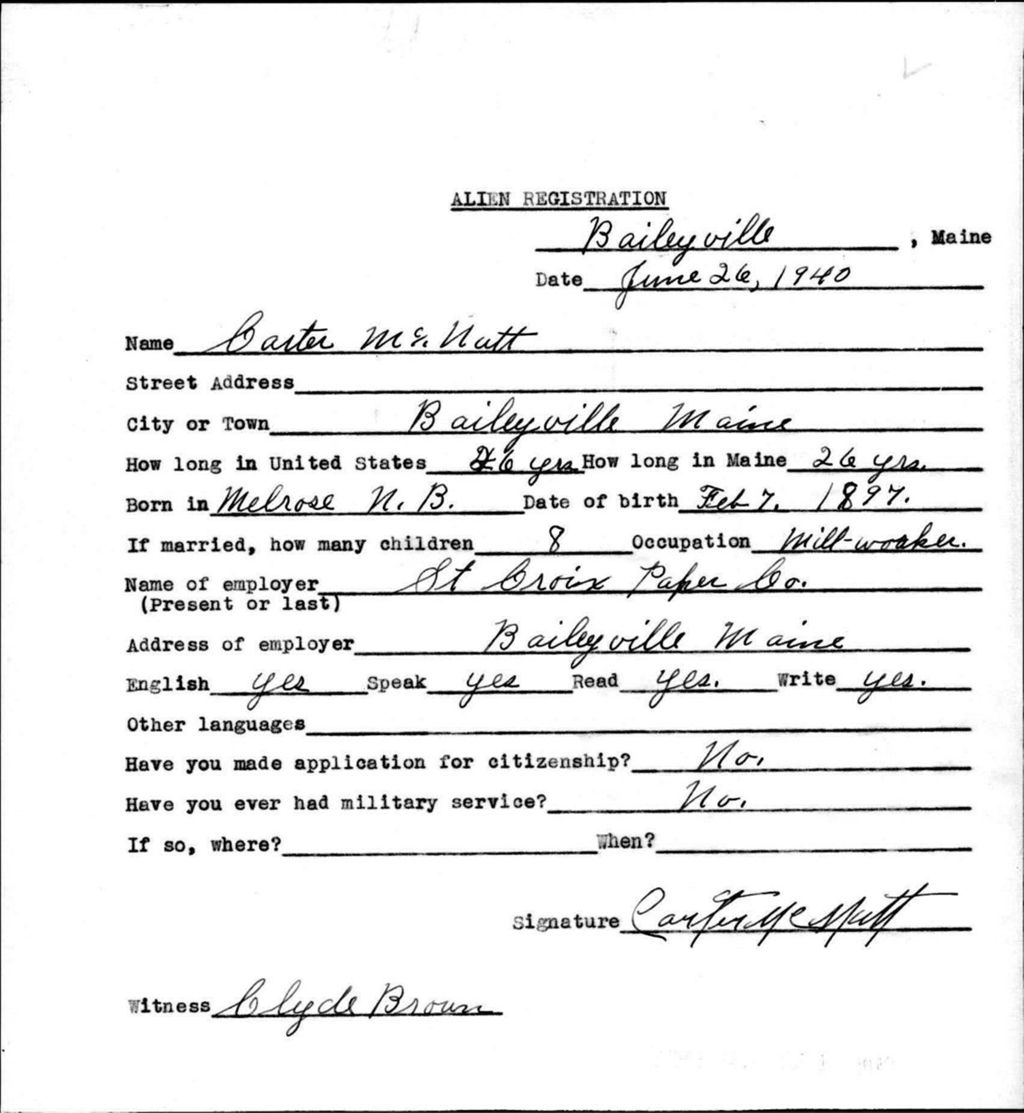 ALIEN REGISTRATION
Baileyville, Maine
Date June 26, 1940
Name Carter Mc. Nutt
Street Address
City or Town Baileyville Maine
How long in United States 26 yrs How long in Maine 26 yrs.
Born in Melrose N. B. Date of birth Feb 7. 1897.
If married, how many children 8 Occupation Mill-worker.
Name of employer St Croix Paper Co.
(Present or last)
Address of employer Baileyville Maine
English yes Speak yes Read yes. Write yes.
Other languages
Have you made application for citizenship? No.
Have you ever had military service? No.
If so, where? When?
Signature Carter Mc Nutt
Witness Clyde Brown